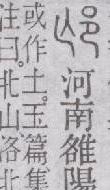 邙河南雒陽
或作土。玉篇集
注曰。北山洛北